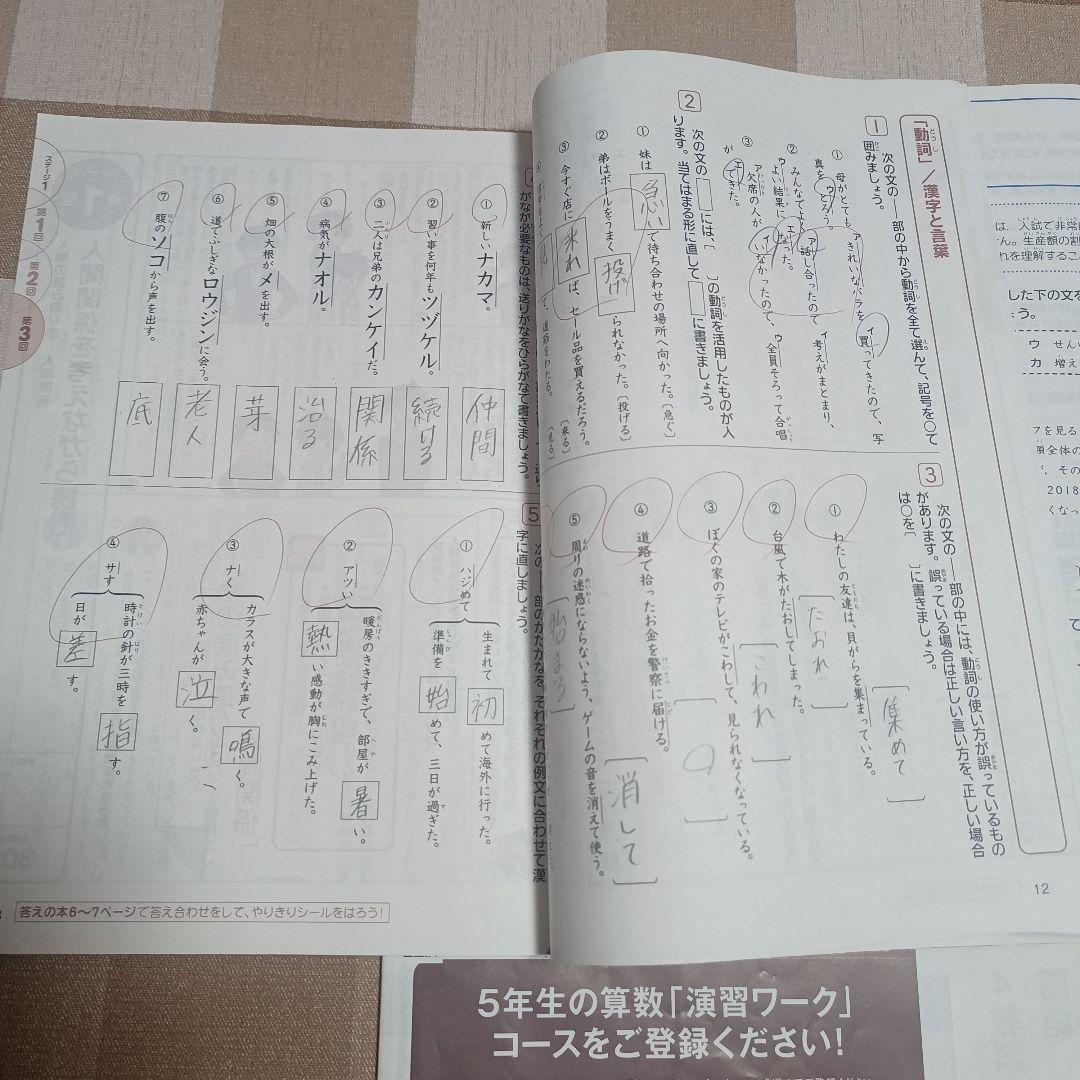 「動詞」/漢字と言葉
1 次の文の──部の中から動詞を全て選んで、記号を○で
囲みましょう。
① 母がとても ア きれいなバラを イ 買ってきたので、写
真を ウ とろう。
② みんなで ア 話し合ったので イ 考えがまとまり、
ウ よい結果に エ なった。
③ ア 欠席の人が イ いなかったので、ウ 全員そろって合唱
が エ できた。
2 次の文の□には、〔 〕の動詞を活用したものが入
ります。当てはまる形に直して□に書きましょう。
① 妹は 急い で待ち合わせの場所へ向かった。〔急ぐ〕
② 弟はボールをうまく 投げ られなかった。〔投げる〕
③ 今すぐ店に 来れ ば、セール品を買えるだろう。〔来る〕
て、道路をわたる。〔見る〕
3 次の文の──部の中には、動詞の使い方が誤っているもの
があります。誤っている場合は正しい言い方を、正しい場合
は○を〔 〕に書きましょう。
① わたしの友達は、貝がらを集まっている。
〔集めて〕
② 台風で木がたおしてしまった。
〔たおれ〕
③ ぼくの家のテレビがこわして、見られなくなっている。
〔こわれ〕
④ 道路で拾ったお金を警察に届ける。
〔○〕
⑤ 周りの迷惑にならないよう、ゲームの音を消えて使う。
〔消して〕
12
がなが必要なものは、送りがなをひらがなで書きましょう。
① 新しいナカマ。
仲間
② 習い事を何年もツヅケル。
続ける
③ 二人は兄弟のカンケイだ。
関係
④ 病気がナオル。
治る
⑤ 畑の大根がメを出す。
芽
⑥ 道でふしぎなロウジンに会う。
老人
⑦ 腹のソコから声を出す。
底
5 次の──部のかたかなを、それぞれの例文に合わせて漢
字に直しましょう。
① ハジめて
生まれて 初 めて海外に行った。
準備を 始 めて、三日が過ぎた。
② アツい
暖房のききすぎで、部屋が 暑 い。
熱 い感動が胸にこみ上げた。
③ ナく
カラスが大きな声で 鳴 く。
赤ちゃんが 泣 く。
④ サす
時計の針が三時を 指 す。
日が 差 す。
ステージ1
第1回
第2回
第3回
答えの本6〜7ページで答え合わせをして、やりきりシールをはろう!
は、入試で非常
ん。生産額の割
れを理解するこ
した下の文を
う。
ウ せんい
カ 増え
フを見る
全体の
、その
2018
くなっ
5年生の算数「演習ワーク」
コースをご登録ください!